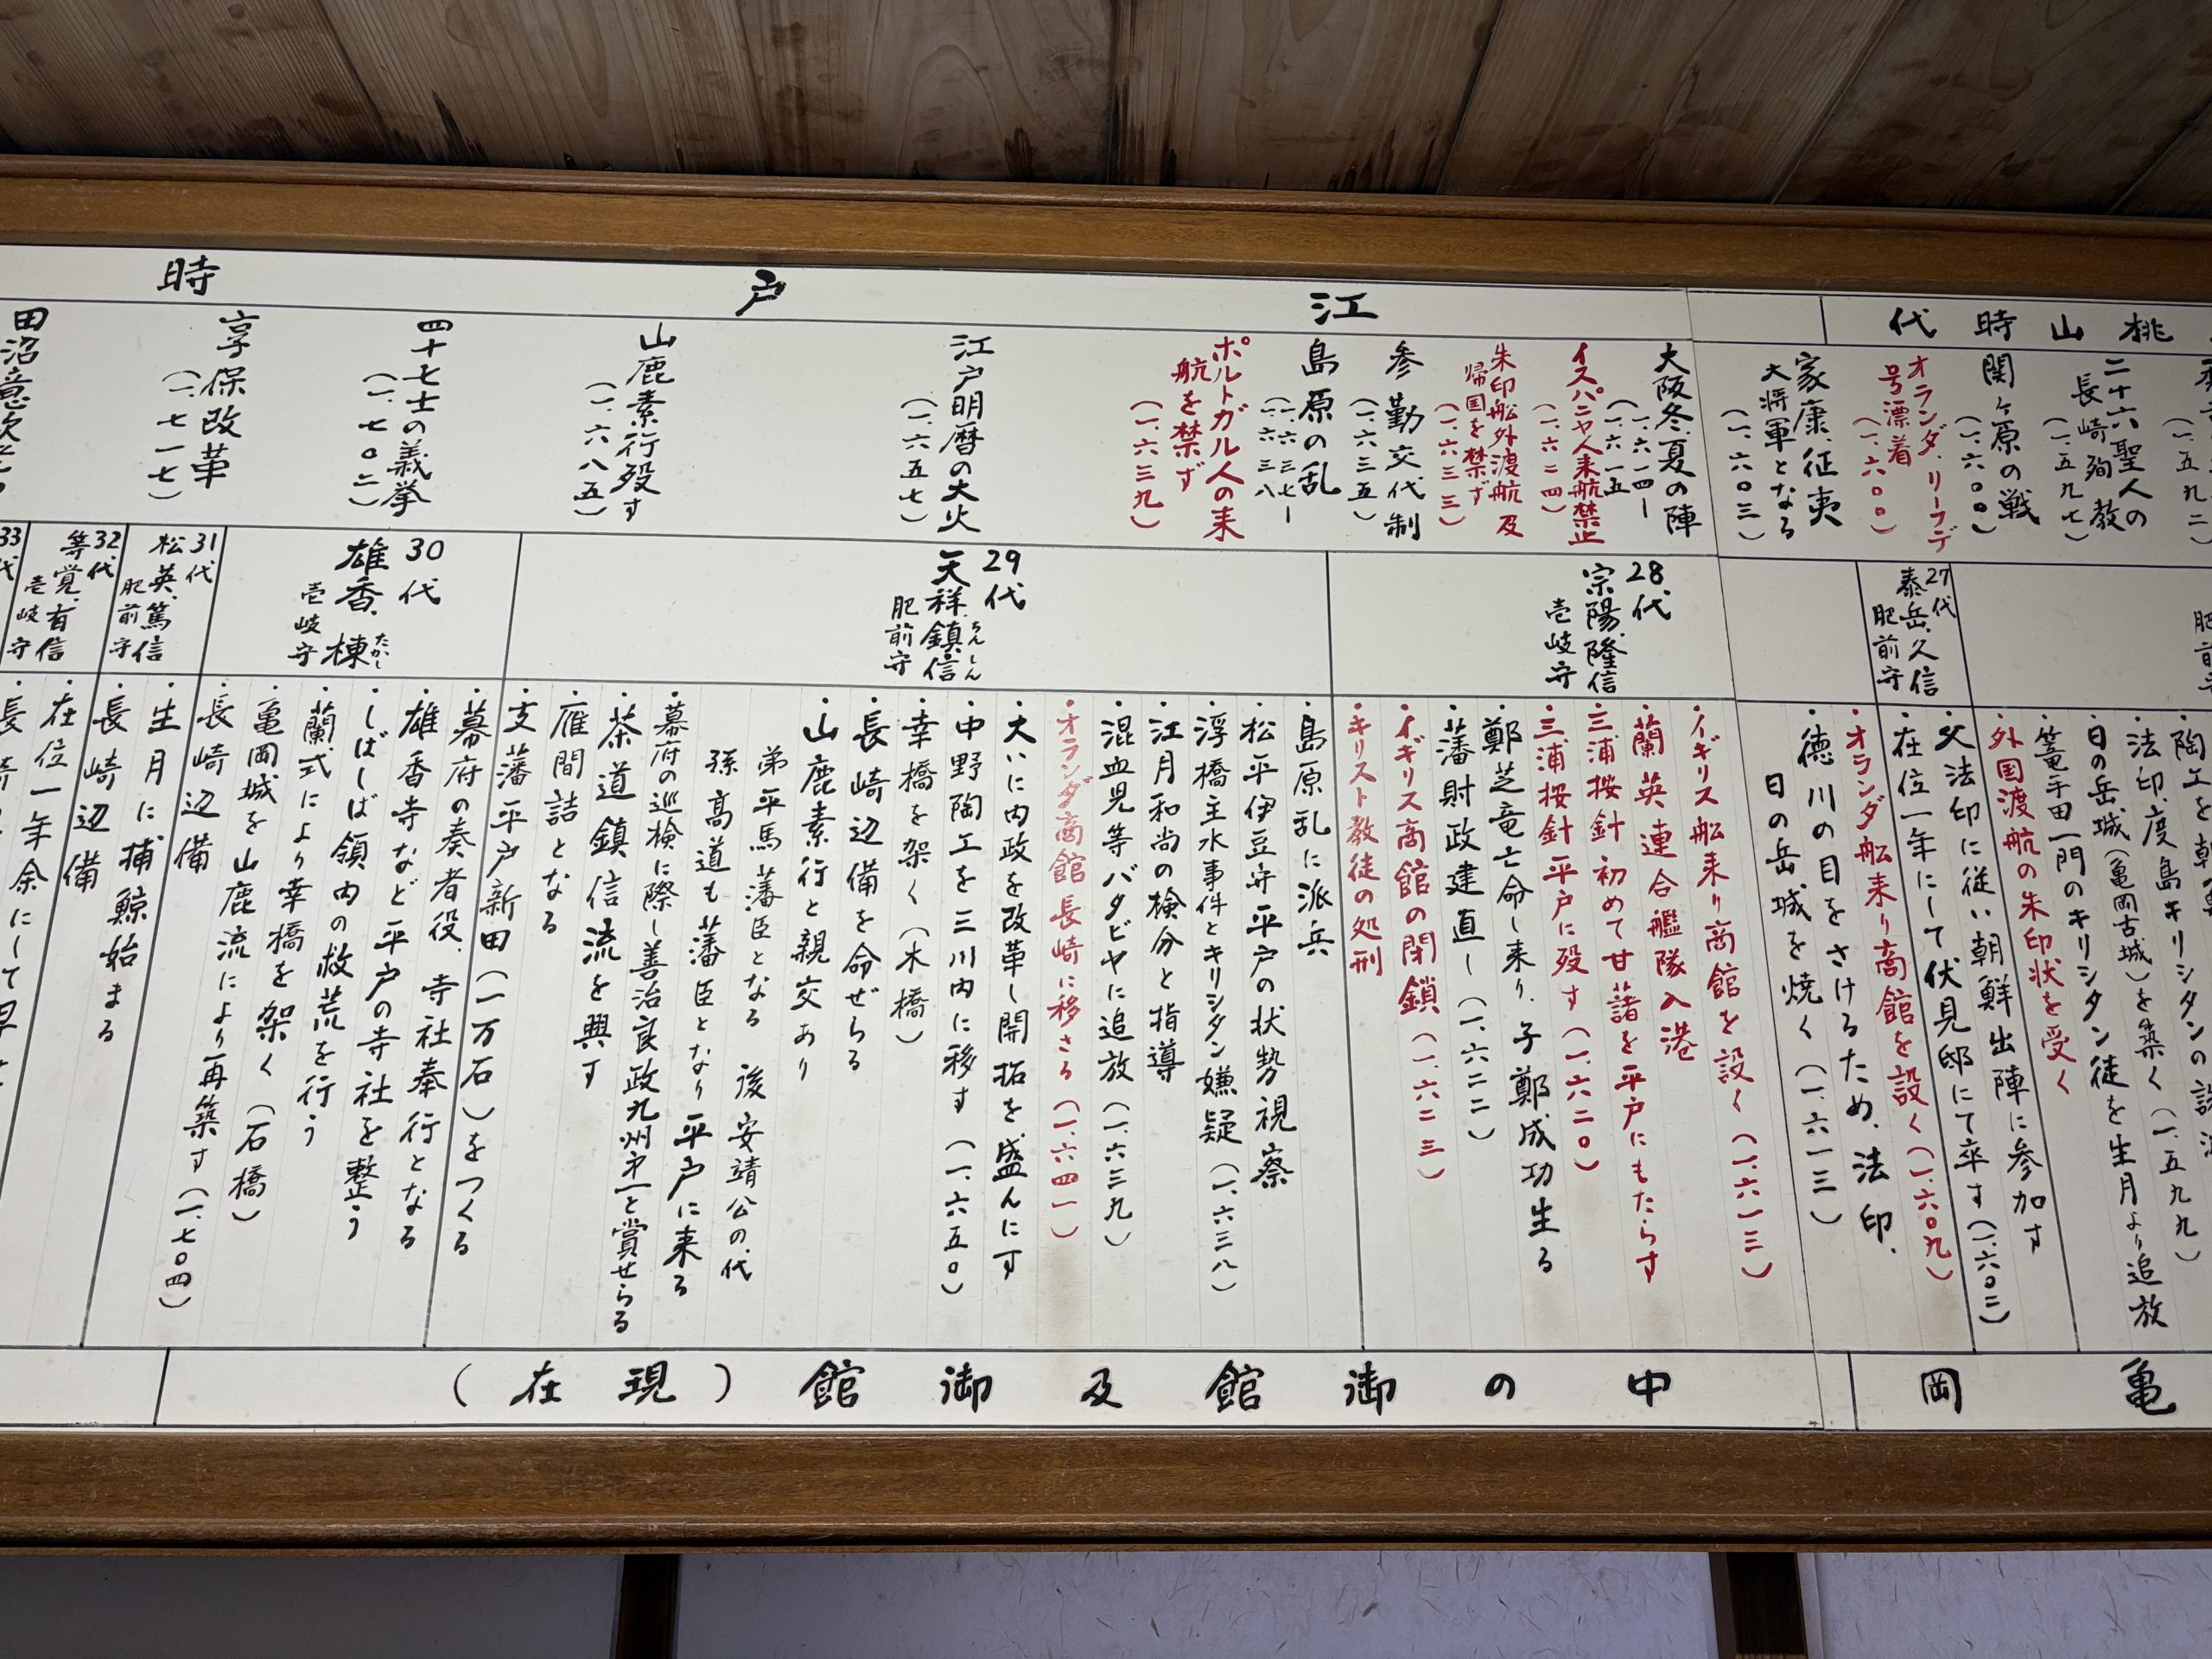 桃山時代
江戸時
二十六聖人の
長崎殉教
(一、五九七)
関ヶ原の戦
(一、六〇〇)
オランダ、リーフデ
号漂着
(一、六〇〇)
家康、征夷
大将軍となる
(一、六〇三)
大阪冬、夏の陣
(一、六一四ー
一、六一五
イスパニヤ人来航禁止
(一、六二四)
朱印船外渡航及
帰国を禁ず
(一、六三三)
参勤交代制
(一、六三五)
島原の乱
(一、六三七ー
一、六三八
ポルトガル人の来
航を禁ず
(一、六三九)
江戸明暦の大火
(一、六五七)
山鹿素行歿す
(一、六八五)
四十七士の義挙
(一、七〇二)
享保改革
(一、七一七)
田沼意次
27代
泰岳、久信
肥前守
28代
宗陽、隆信
壱岐守
29代
天祥、鎮信
ちんしん
肥前守
30代
雄香、棟
たかし
壱岐守
31代
松英、篤信
肥前守
32代
等覚、有信
壱岐守
33代
・法印、度島キリシタン
・日の岳城(亀岡古城)を築く(一、五九九)
・篭手田一門のキリシタン徒を生月より追放
・外国渡航の朱印状を受く
・父法印に従い朝鮮出陣に参加す
・在位一年にして伏見邸にて卒す(一、六〇二)
・オランダ船来り商館を設く(一、六〇九)
・徳川の目をさけるため、法印、
日の岳城を焼く(一、六一三)
・イギリス船来り商館を設く(一、六一三)
・蘭英連合艦隊入港
・三浦按針初めて甘藷を平戸にもたらす
・三浦按針平戸に歿す(一、六二〇)
・鄭芝竜亡命し来り、子鄭成功生る
・藩財政建直し(一、六二二)
・イギリス商館の閉鎖(一、六二三)
・キリスト教徒の処刑
・島原乱に派兵
・松平伊豆守平戸の状勢視察
・浮橋主水事件とキリシタン嫌疑(一、六三八)
・江月和尚の検分と指導
・混血児等バタビヤに追放(一、六三九)
・オランダ商館長崎に移さる(一、六四一)
・大いに内政を改革し開拓を盛んにす
・中野陶工を三川内に移す(一、六五〇)
・幸橋を架く(木橋)
・長崎辺備を命ぜらる
・山鹿素行と親交あり
弟平馬藩臣となる 後安靖公の代
孫高道も藩臣となり平戸に来る
・幕府の巡検に際し善治良政九州第一と賞せらる
・茶道鎮信流を興す
・雁間詰となる
・支藩平戸新田(一万石)をつくる
・幕府の奏者役、寺社奉行となる
・雄香寺など平戸の寺社を整う
・しばしば領内の救荒を行う
・蘭式により幸橋を架く(石橋)
・亀岡城を山鹿流により再築す(一、七〇四)
・長崎辺備
・生月に捕鯨始まる
・長崎辺備
・在位一年余にして早
亀岡
中の御館及御館(現在)